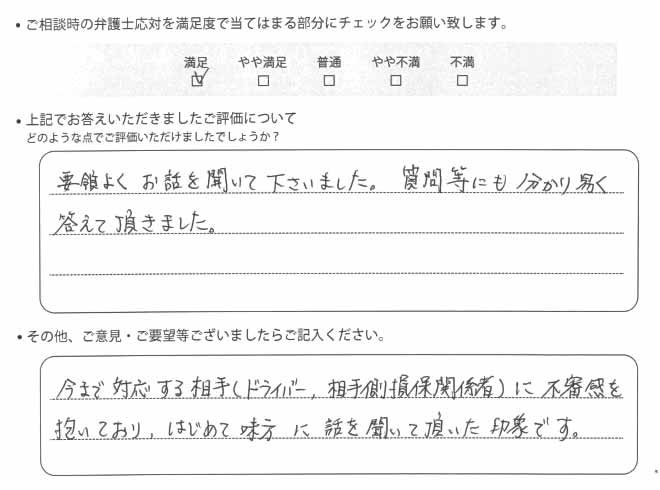 • ご相談時の弁護士応対を満足度で当てはまる部分にチェックをお願い致します。
満足 やや満足 普通 やや不満 不満
• 上記でお答えいただきましたご評価について
どのような点でご評価いただけましたでしょうか？
要領よくお話を聞いて下さいました。質問等にも分かり易く
答えて頂きました。
• その他、ご意見・ご要望等ございましたらご記入ください。
今まで対応する相手(ドライバー, 相手側損保関係者)に不審感を
抱いており, はじめて味方に話を聞いて頂いた印象です。